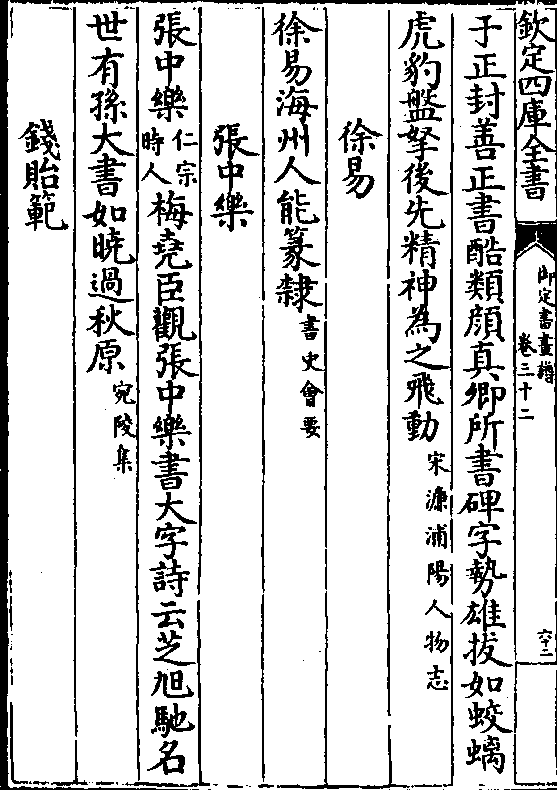 欽定四庫全書
御定書畫譜
卷三十二
六十二
于正封善正書酷類顔真卿所書碑字勢雄拔如蛟螭
虎豹盤拏後先精神為之飛動宋濂浦陽人物志
徐易
徐易海州人能篆隸書史會要
張中樂
張中樂仁宗時人梅堯臣觀張中樂書大字詩云芝旭馳名
世有孫大書如曉過秋原宛陵集
錢貽範